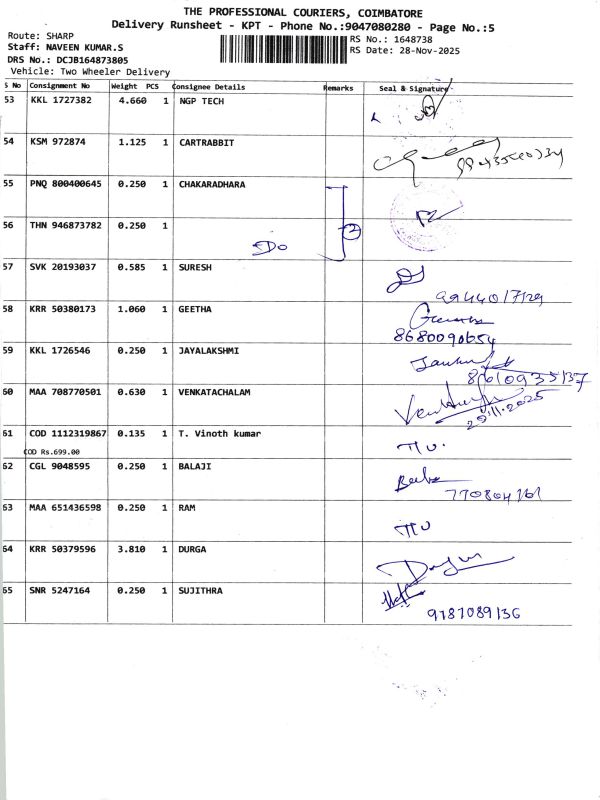 THE PROFESSIONAL COURIERS, COIMBATORE
Delivery Runsheet - KPT - Phone No.:9047080280 - Page No.:5
Route: SHARP
RS No.: 1648738
Staff: NAVEEN KUMAR.S
RS Date: 28-Nov-2025
DRS No.: DCJB164873805
Vehicle: Two Wheeler Delivery
S No Consignment No Weight PCS Consignee Details Remarks Seal & Signature
53 KKL 1727382 4.660 1 NGP TECH
54 KSM 972874 1.125 1 CARTRABBIT
55 PNQ 800400645 0.250 1 CHAKARADHARA
56 THN 946873782 0.250 1 Do 2
57 SVK 20193037 0.585 1 SURESH
9944017129
58 KRR 50380173 1.060 1 GEETHA
8680090654
59 KKL 1726546 0.250 1 JAYALAKSHMI
8610935137
60 MAA 708770501 0.630 1 VENKATACHALAM
29.11.2025
61 COD 1112319867 0.135 1 T. Vinoth kumar
COD Rs.699.00
62 CGL 9048595 0.250 1 BALAJI
63 MAA 651436598 0.250 1 RAM
64 KRR 50379596 3.810 1 DURGA
65 SNR 5247164 0.250 1 SUJITHRA
9787089136